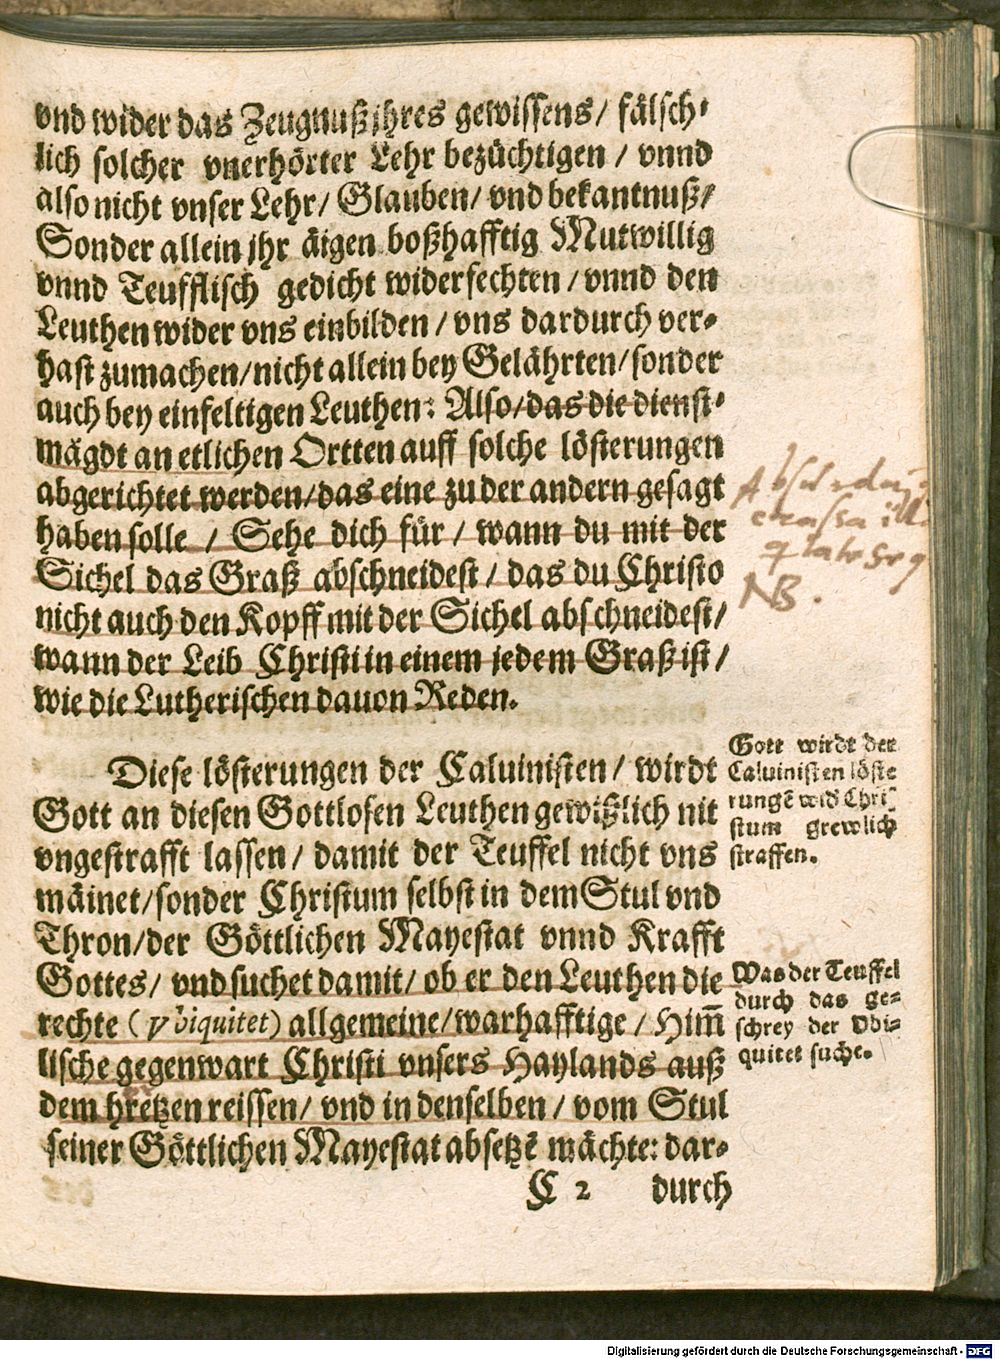 vnd wider das Zeugnuß jhres gewissens / fälsch-
lich solcher vnerhörter Lehr bezüchtigen / vnnd
also nicht vnser Lehr / Glauben / vnd bekantnuß /
Sonder allein jhr äigen boßhafftig Mutwillig
vnnd Teufflisch gedicht widerfechten / vnnd den
Leuthen wider vns einbilden / vns dardurch ver-
hast zumachen / nicht allein bey Gelährten / sonder
auch bey einfeltigen Leuthen: Also / das die dienst-
mägdt an etlichen Ortten auff solche lösterungen
abgerichtet werden / das eine zu der andern gesagt
haben solle / Sehe dich für / wann du mit der
Sichel das Graß abschneidest / das du Christo
nicht auch den Kopff mit der Sichel abschneidest /
wann der Leib Christi in einem jedem Graß ist /
wie die Lutherischen dauon Reden.
NB.
Diese lösterungen der Caluinisten / wirdt
Gott an diesen Gottlosen Leuthen gewißlich nit
vngestrafft lassen / damit der Teuffel nicht vns
mäinet / sonder Christum selbst in dem Stul vnd
Thron / der Göttlichen Mayestat vnnd Krafft
Gottes / vnd suchet damit / ob er den Leuthen die
rechte (Vbiquitet) allgemeine / warhafftige / Him̄
lische gegenwart Christi vnsers Haylands auß
dem hretzen reissen / vnd in denselben / vom Stul
seiner Göttlichen Mayestat absetzē mächte: dar-
C 2 durch
Gott wirdt der
Caluinisten löste
rungē wid Chri
stum grewlich
straffen.
Was der Teuffel
durch das ge-
schrey der Vbi-
quitet suche.
Digitalisierung gefördert durch die Deutsche Forschungsgemeinschaft - DFG